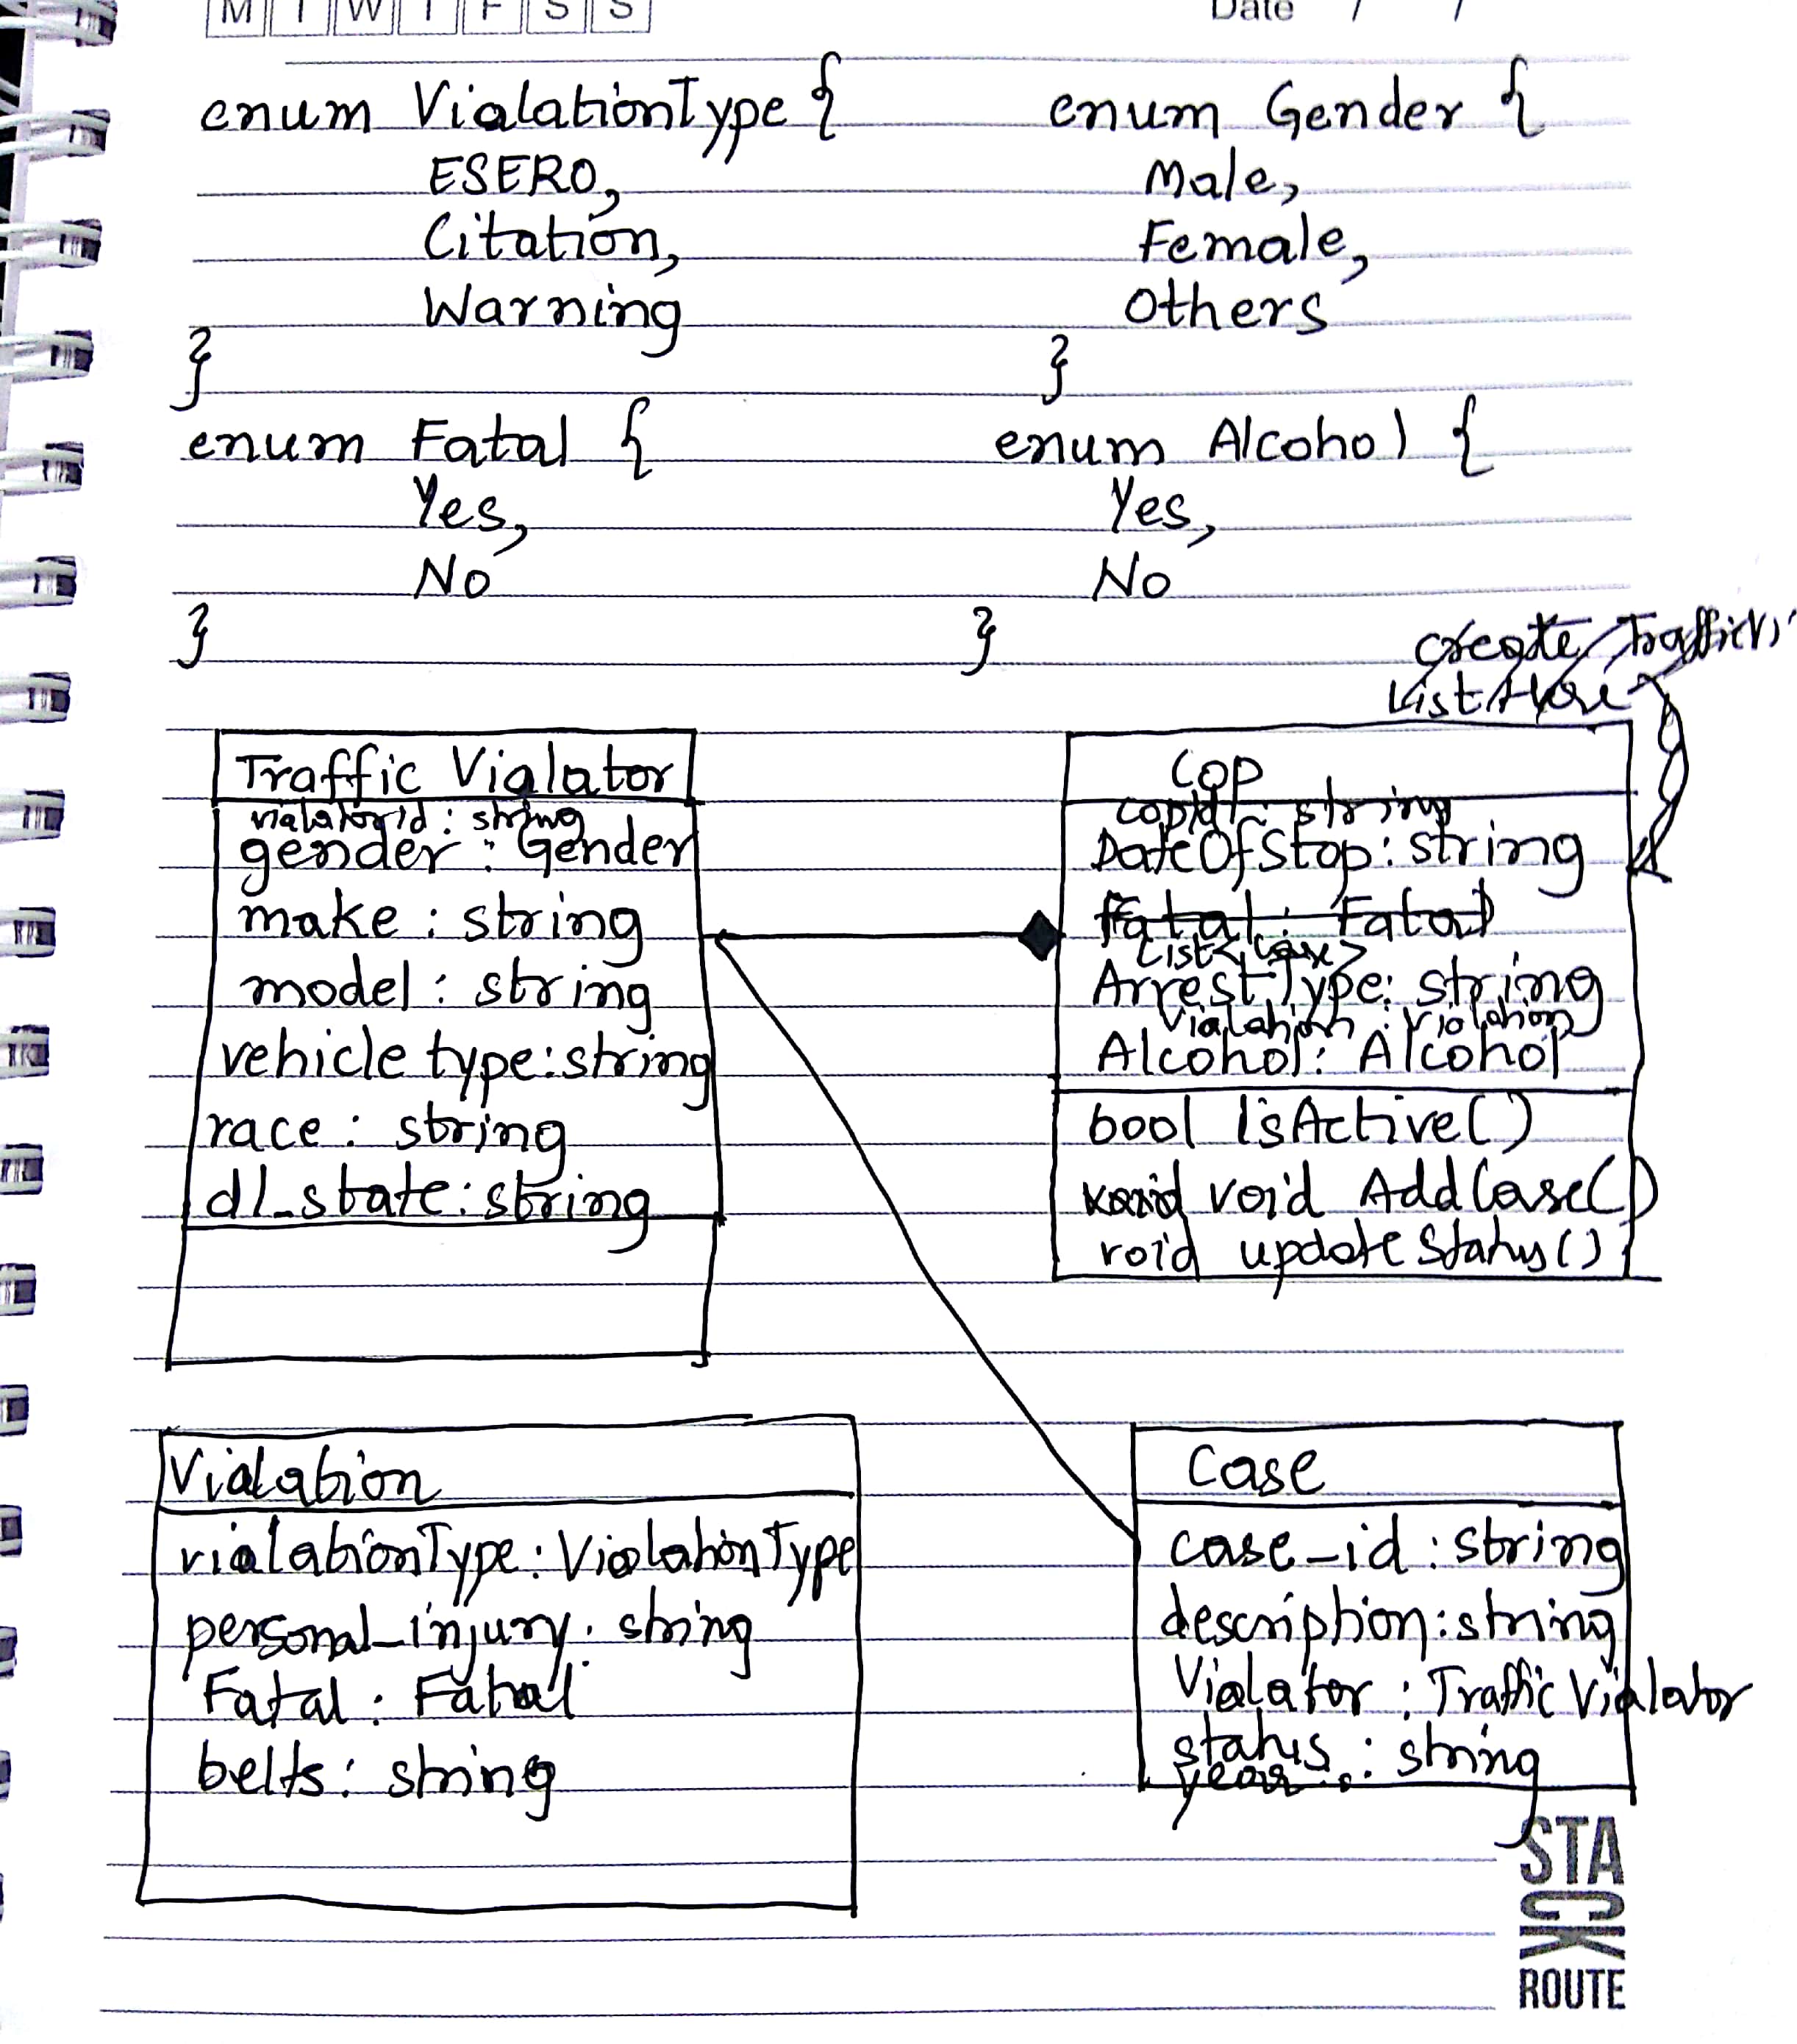 M T W T F S S
Date / /
enum VialationType {
ESERO,
Citation,
Warning
}
enum Gender {
Male,
Female,
Others
}
enum Fatal {
Yes,
No
}
enum Alcohol {
Yes,
No
}
create Traffic
List
Traffic Vialator
vialatorid : string
gender : Gender
make : string
model : string
vehicle type:string
race : string
dl_state:string
Cop
copId : string
DateOfStop: string
Fatal : Fatal
List<Case>
ArrestType: string
Vialation : Violation
Alcohol: Alcohol
bool IsActive()
void AddCase()
void updateStatus()
Vialation
vialationType: ViolationType
personal_injury: string
Fatal : Fatal
belts: string
Case
case_id : string
description:string
Vialator : Traffic Vialator
status : string
year :
STA
CK
ROUTE